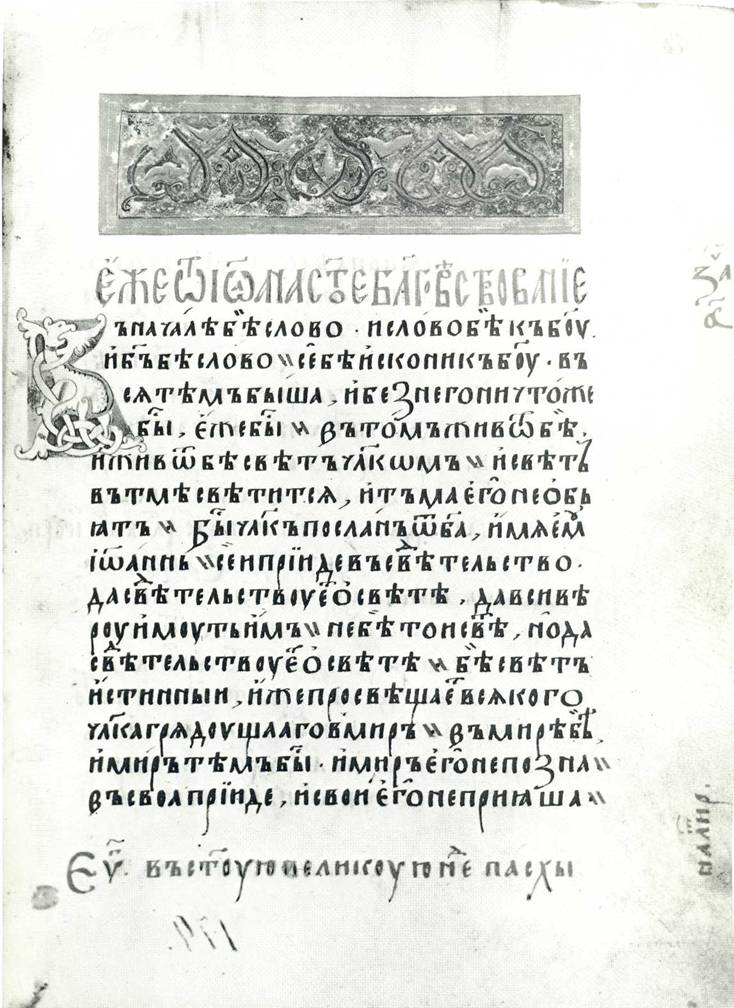 Е҆́же ѿ і҆ѡ҆́на ст҃ое бл҃говѣ́ствованїе
Въ нача́лѣ бѣ̀ сло́во · и сло́во бѣ̀ къ бг҃оу.
и҆ бг҃ъ бѣ̀ сло́во · се́ бѣ̀ и҆скони къ бг҃оу · въ
ся тѣмъ быша, и҆ без него ничтоже
бы́, е҆́же бы́ · въ томъ живѡ́ бѣ̀,
и живѡ́ бѣ свѣтъ чл҃кѡмъ · и҆ свѣтъ
въ тмѣ свѣтится, и҆ тъма е҆го̀ не ѡбь
ꙗтъ · Бы́ чл҃къ посланъ ѿ б҃а, и҆мя е҆мꙋ̀
і҆ѡ҆аннь · сеи прїиде въ свѣ́тельство ·
да свѣ́тельствоуе҆ ѻ свѣтѣ, да вси вѣ
роу и҆моуть и҆мъ · не бѣ̀ то и свѣ́, нѻ̀ да
свѣ́тельствоуе҆ ѻ свѣтѣ · бѣ̀ свѣтъ
и҆стинныи, и҆же просвѣщае҆ всякого
чл҃ка грядоущааго в мир · въ мирѣ бѣ̀,
и҆ мирь тѣмъ бы́ · и҆ мирь е҆го̀ не позна ·
въ своа прїиде, и҆ свои е҆го̀ не приꙗша ·
Еѵ҃ · въ ст҃оую и великоую не҃ пасхы